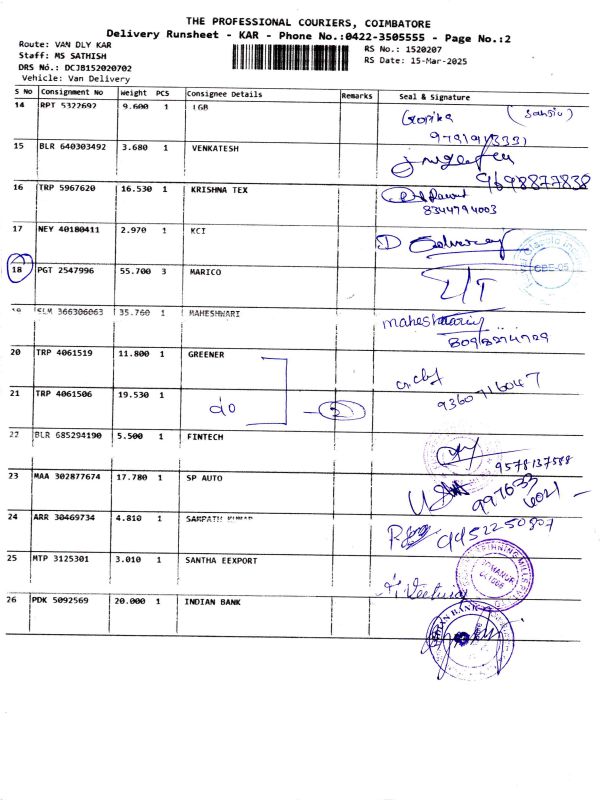 THE PROFESSIONAL COURIERS, COIMBATORE
Delivery Runsheet - KAR - Phone No.:0422-3505555 - Page No.:2
Route: VAN DLY KAR
RS No.: 1520207
Staff: MS SATHISH
RS Date: 15-Mar-2025
DRS No.: DCJB152020702
Vehicle: Van Delivery
S No Consignment No Weight PCS Consignee Details Remarks Seal & Signature
14 RPT 5322692 9.600 1 LGB
Gopika
15 BLR 640303492 3.680 1 VENKATESH
9698877838
16 TRP 5967620 16.530 1 KRISHNA TEX
8344794003
17 NEY 40180411 2.970 1 KCI
18 PGT 2547996 55.700 3 MARICO
CBE-05
19 SLM 366306063 35.760 1 MAHESHWARI
Maheshwari
8098274729
20 TRP 4061519 11.800 1 GREENER
9360716047
21 TRP 4061506 19.530 1 do
22 BLR 685294190 5.500 1 FINTECH
9578137588
23 MAA 302877674 17.780 1 SP AUTO
997633
6021
24 ARR 30469734 4.810 1 SAMPATH KUMAR
9952250807
25 MTP 3125301 3.010 1 SANTHA EEXPORT
SPINNING MILLS
26 PDK 5092569 20.000 1 INDIAN BANK
INDIAN BANK